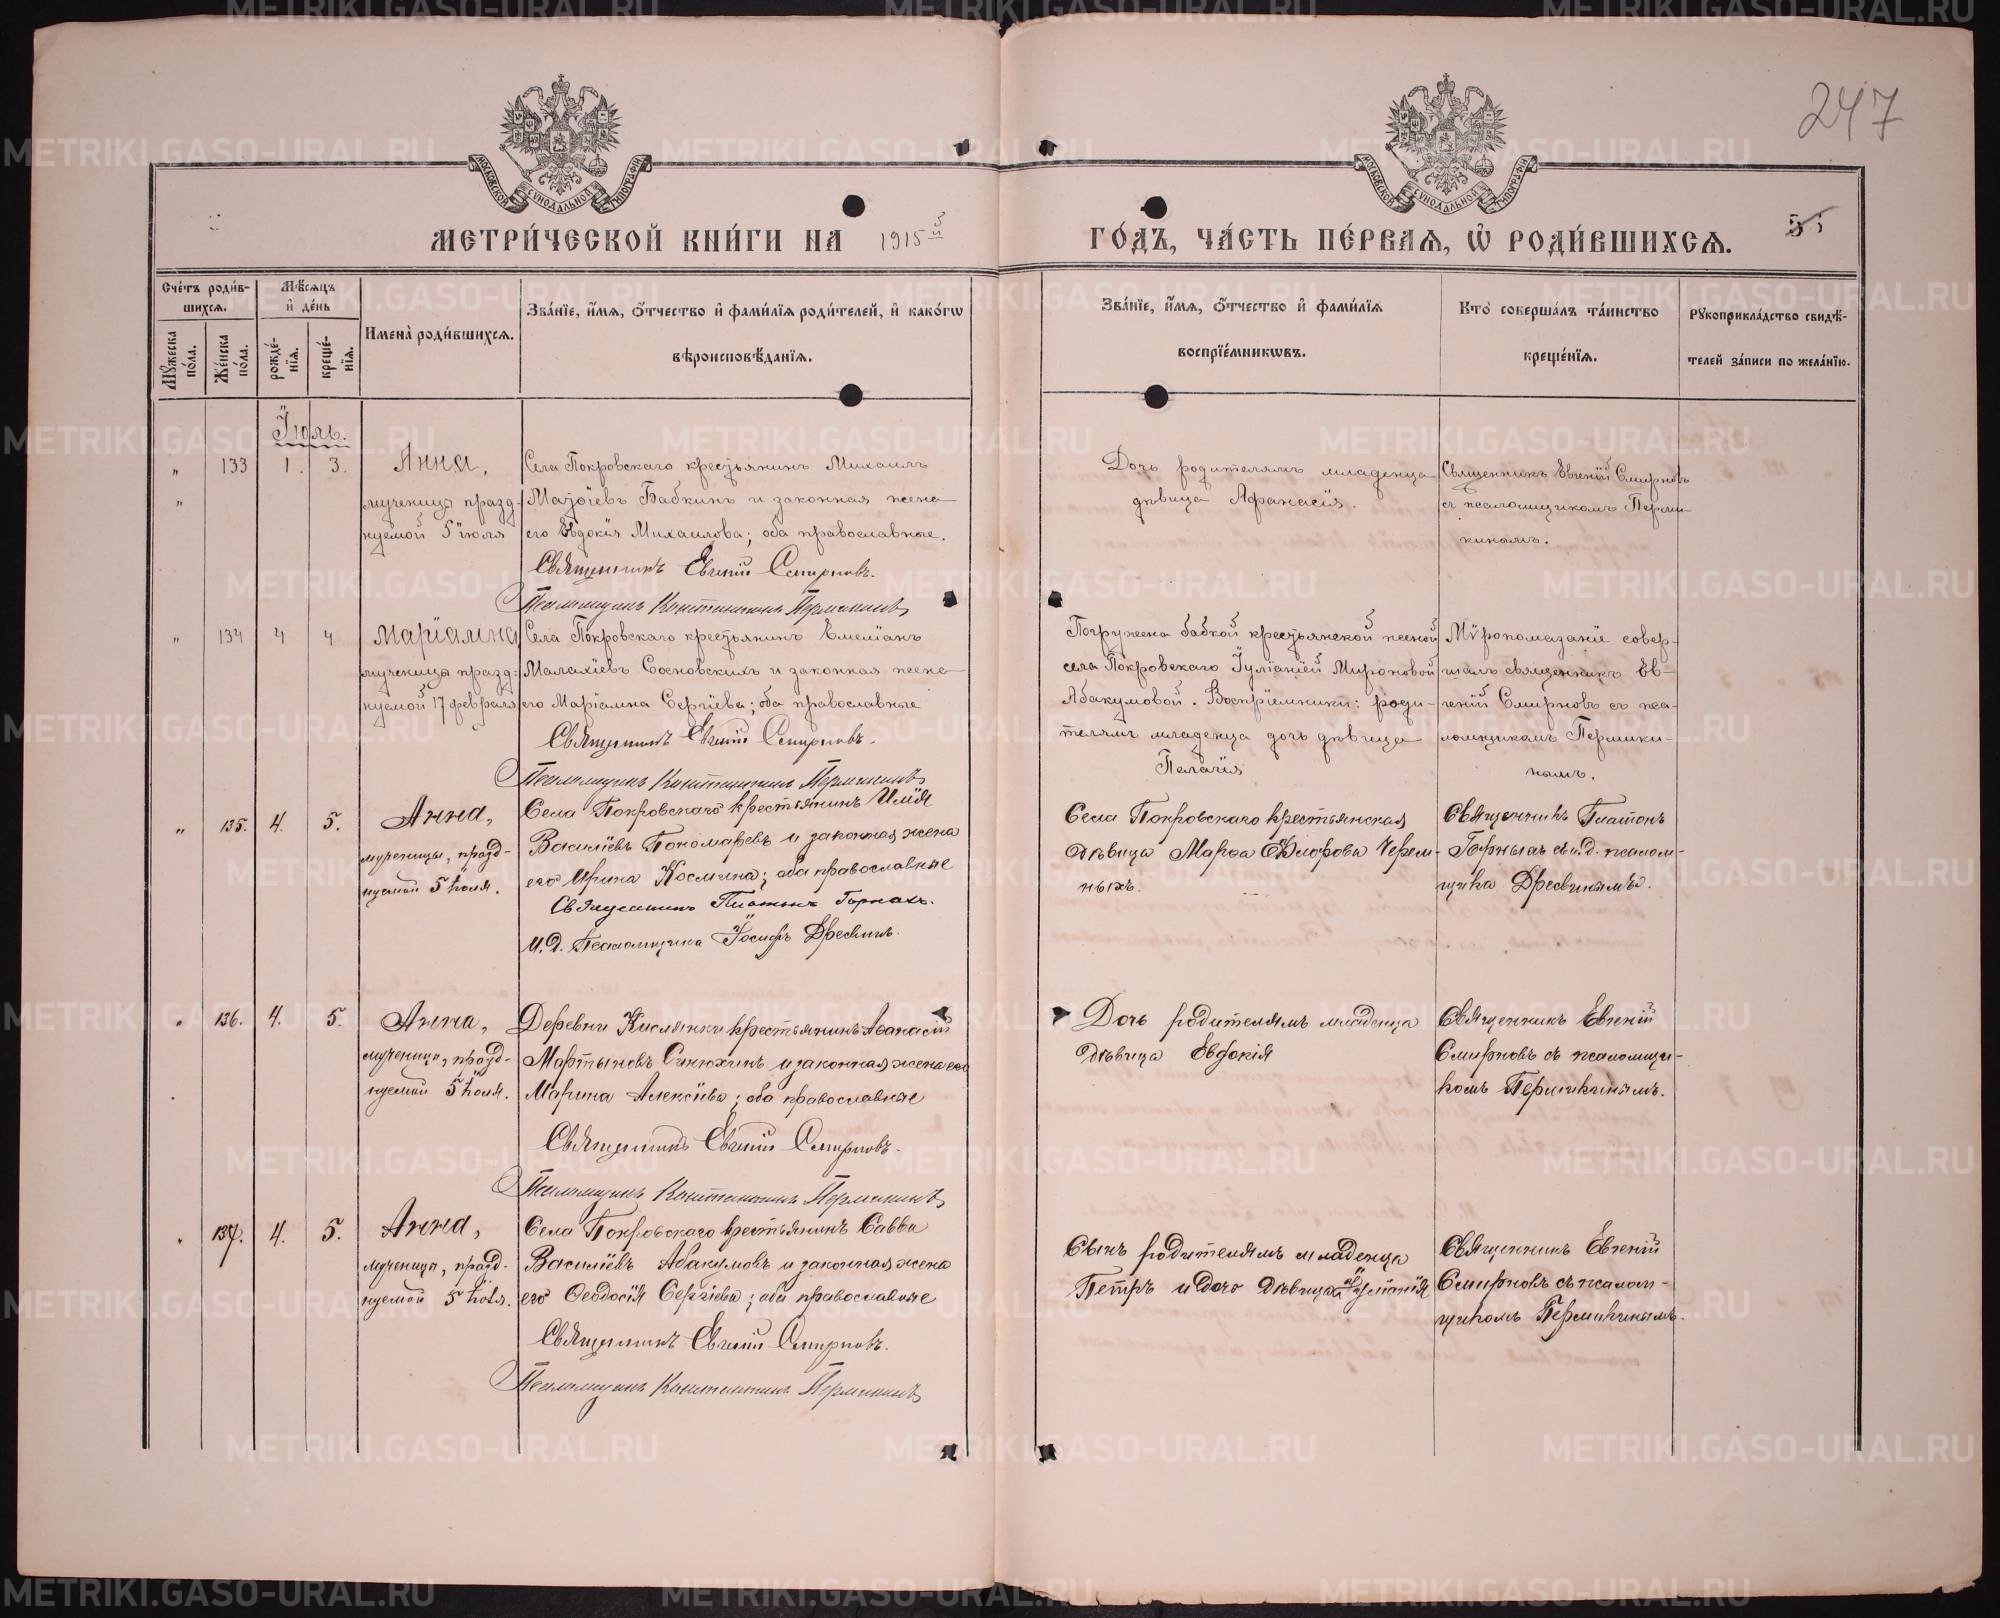 247
МОСКОВСКОЙ СѴНОДАЛЬНОЙ ТИПОГРАФІИ
МОСКОВСКОЙ СѴНОДАЛЬНОЙ ТИПОГРАФІИ
МЕТРИ́ЧЕСКОЙ КНИ́ГИ НА 1915й
ГО́ДЪ, ЧА́СТЬ ПЕ́РВАѦ, Ѡ҆ РОДИ́ВШИХСѦ.
Сче́тъ роди́в-
шихсѧ.
Мꙋ́жеска по́ла.
Же́нска по́ла.
Мѣ́сѧцъ
и҆ де́нь
рожде́-
нїѧ.
креще́-
нїѧ.
Имена̀ роди́вшихсѧ.
Зва́нїе, и҆́мѧ, ѻ҆́тчество и҆ фами́лїѧ роди́телей, и҆ како́гѡ
вѣроисповѣ́данїѧ.
Зва́нїе, и҆́мѧ, ѻ҆́тчество и҆ фами́лїѧ
воспрїе́мникѡвъ.
Кто̀ соверша́лъ та́инство
креще́нїѧ.
Рꙋкоприкла́дство свидѣ́-
телей за́писи по жела́нїю.
Іюль.
" 133 1. 3. Анна,
мученица празд-
нуемой 5 іюля
Села Покровскаго крестьянинъ Михаилъ
Матѳіевъ Бабкинъ и законная жена
его Евдокія Михаилова; оба православные.
Священникъ Евгеній Смирновъ.
Псаломщикъ Константинъ Пермикинъ
Дочь родителямъ младенца
дѣвица Афанасія.
Священникъ Евгеній Смирновъ
съ псаломщикомъ Перми-
кинымъ.
" 134 4 4 Маріамна,
мученица празд-
нуемой 17 февраля
Села Покровскаго крестьянинъ Емеліанъ
Малахіевъ Сосновскихъ и законная жена
его Маріамна Сергіева; оба православные
Священникъ Евгеній Смирновъ.
Псаломщикъ Константинъ Пермикинъ
Погружена бабкой крестьянской женой
села Покровскаго Іуліаніей Мироновой
Абакумовой. Воспріемники: роди-
телямъ младенца дочь дѣвица
Пелагія
Мѵропомазаніе совер-
шалъ священникъ Ев-
геній Смирновъ съ пса-
ломщикомъ Пермики-
нымъ.
" 135. 4. 5. Анна,
мученицы, празд-
нуемой 5 іюля.
Села Покровскаго крестьянинъ Илія
Василіевъ Пономаревъ и законная жена
его Ирина Космина; оба православные
Священникъ Платонъ Горныхъ.
И.д. Псаломщика Іосифъ Дресвинъ.
Села Покровскаго крестьянская
дѣвица Марѳа Елиофова Черем-
ныхъ.
Священникъ Платонъ
Горныхъ съ и.д. псалом-
щика Дресвинымъ.
" 136. 4. 5. Анна,
мученица, празд-
нуемой 5 іюля.
Деревни Кислянки крестьянинъ Аѳанасій
Мартыновъ Синюхинъ и законная жена его
Марина Алексіева; оба православные
Священникъ Евгеній Смирновъ.
Псаломщикъ Константинъ Пермикинъ
Дочь родителямъ младенца
дѣвица Евдокія
Священникъ Евгеній
Смирновъ съ псаломщи-
комъ Пермикинымъ.
" 137. 4. 5. Анна,
мученица, празд-
нуемой 5 іюля.
Села Покровскаго крестьянинъ Савва
Василіевъ Абакумовъ и законная жена
его Ѳеодосія Сергіева; оба православные
Священникъ Евгеній Смирновъ.
Псаломщикъ Константинъ Пермикинъ
Сынъ родителямъ младенца
Петръ и дочь дѣвица Іуліанія
Священникъ Евгеній
Смирновъ съ псалом-
щикомъ Пермикинымъ.
METRIKI.GASO-URAL.RU